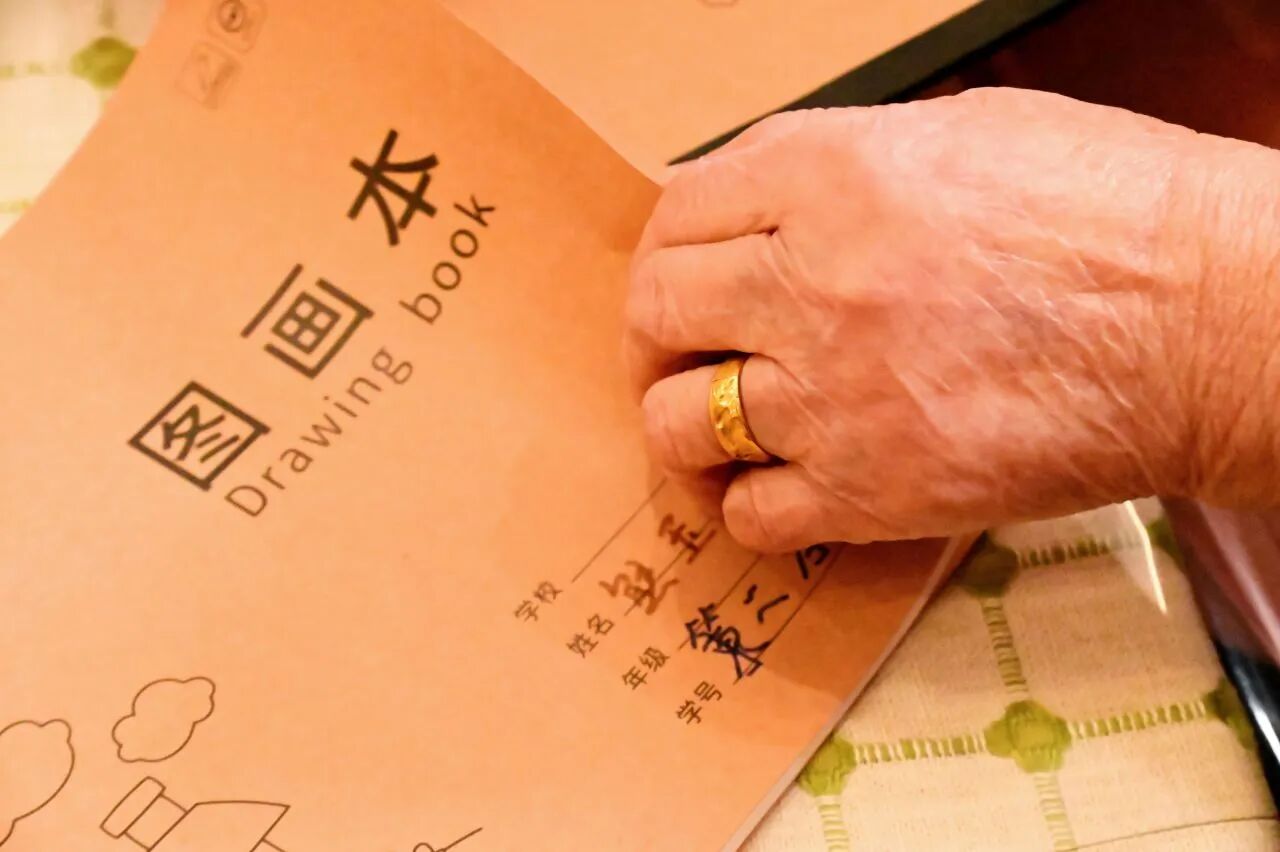 图画本
Drawing book
学校
姓名
年级 第
学号